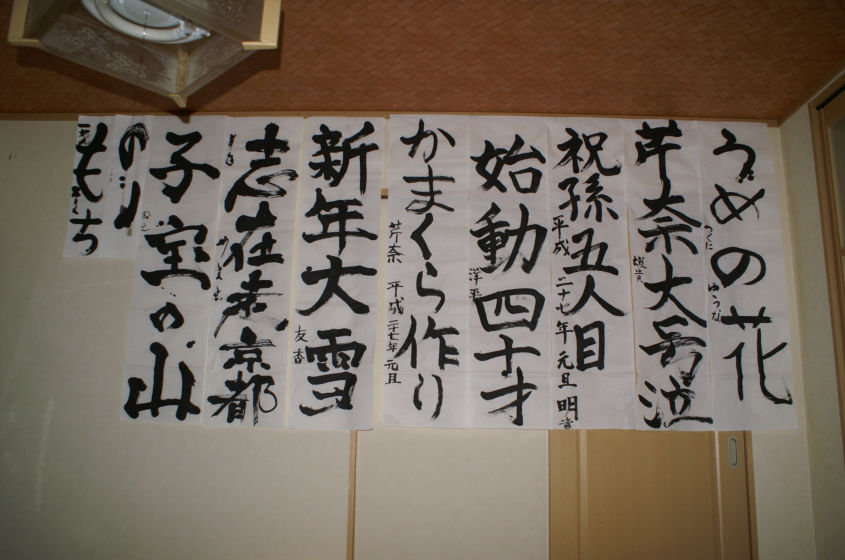 うめの花
ゆうな
芹奈大号泣
祝孫五人目
平成二十七年元旦 明
始動四十才
洋平
かまくら作り
芹奈 平成二十七年元旦
新年大雪
友香
志在東京都
子室の山
もち